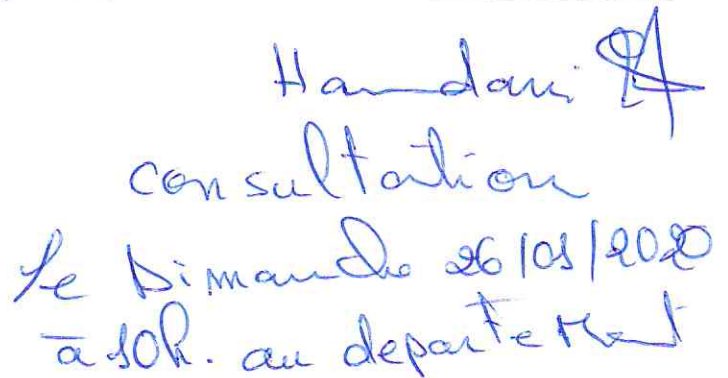 Hamdani
consultation
le Dimanche 26/01/2020
à 10h. au departement